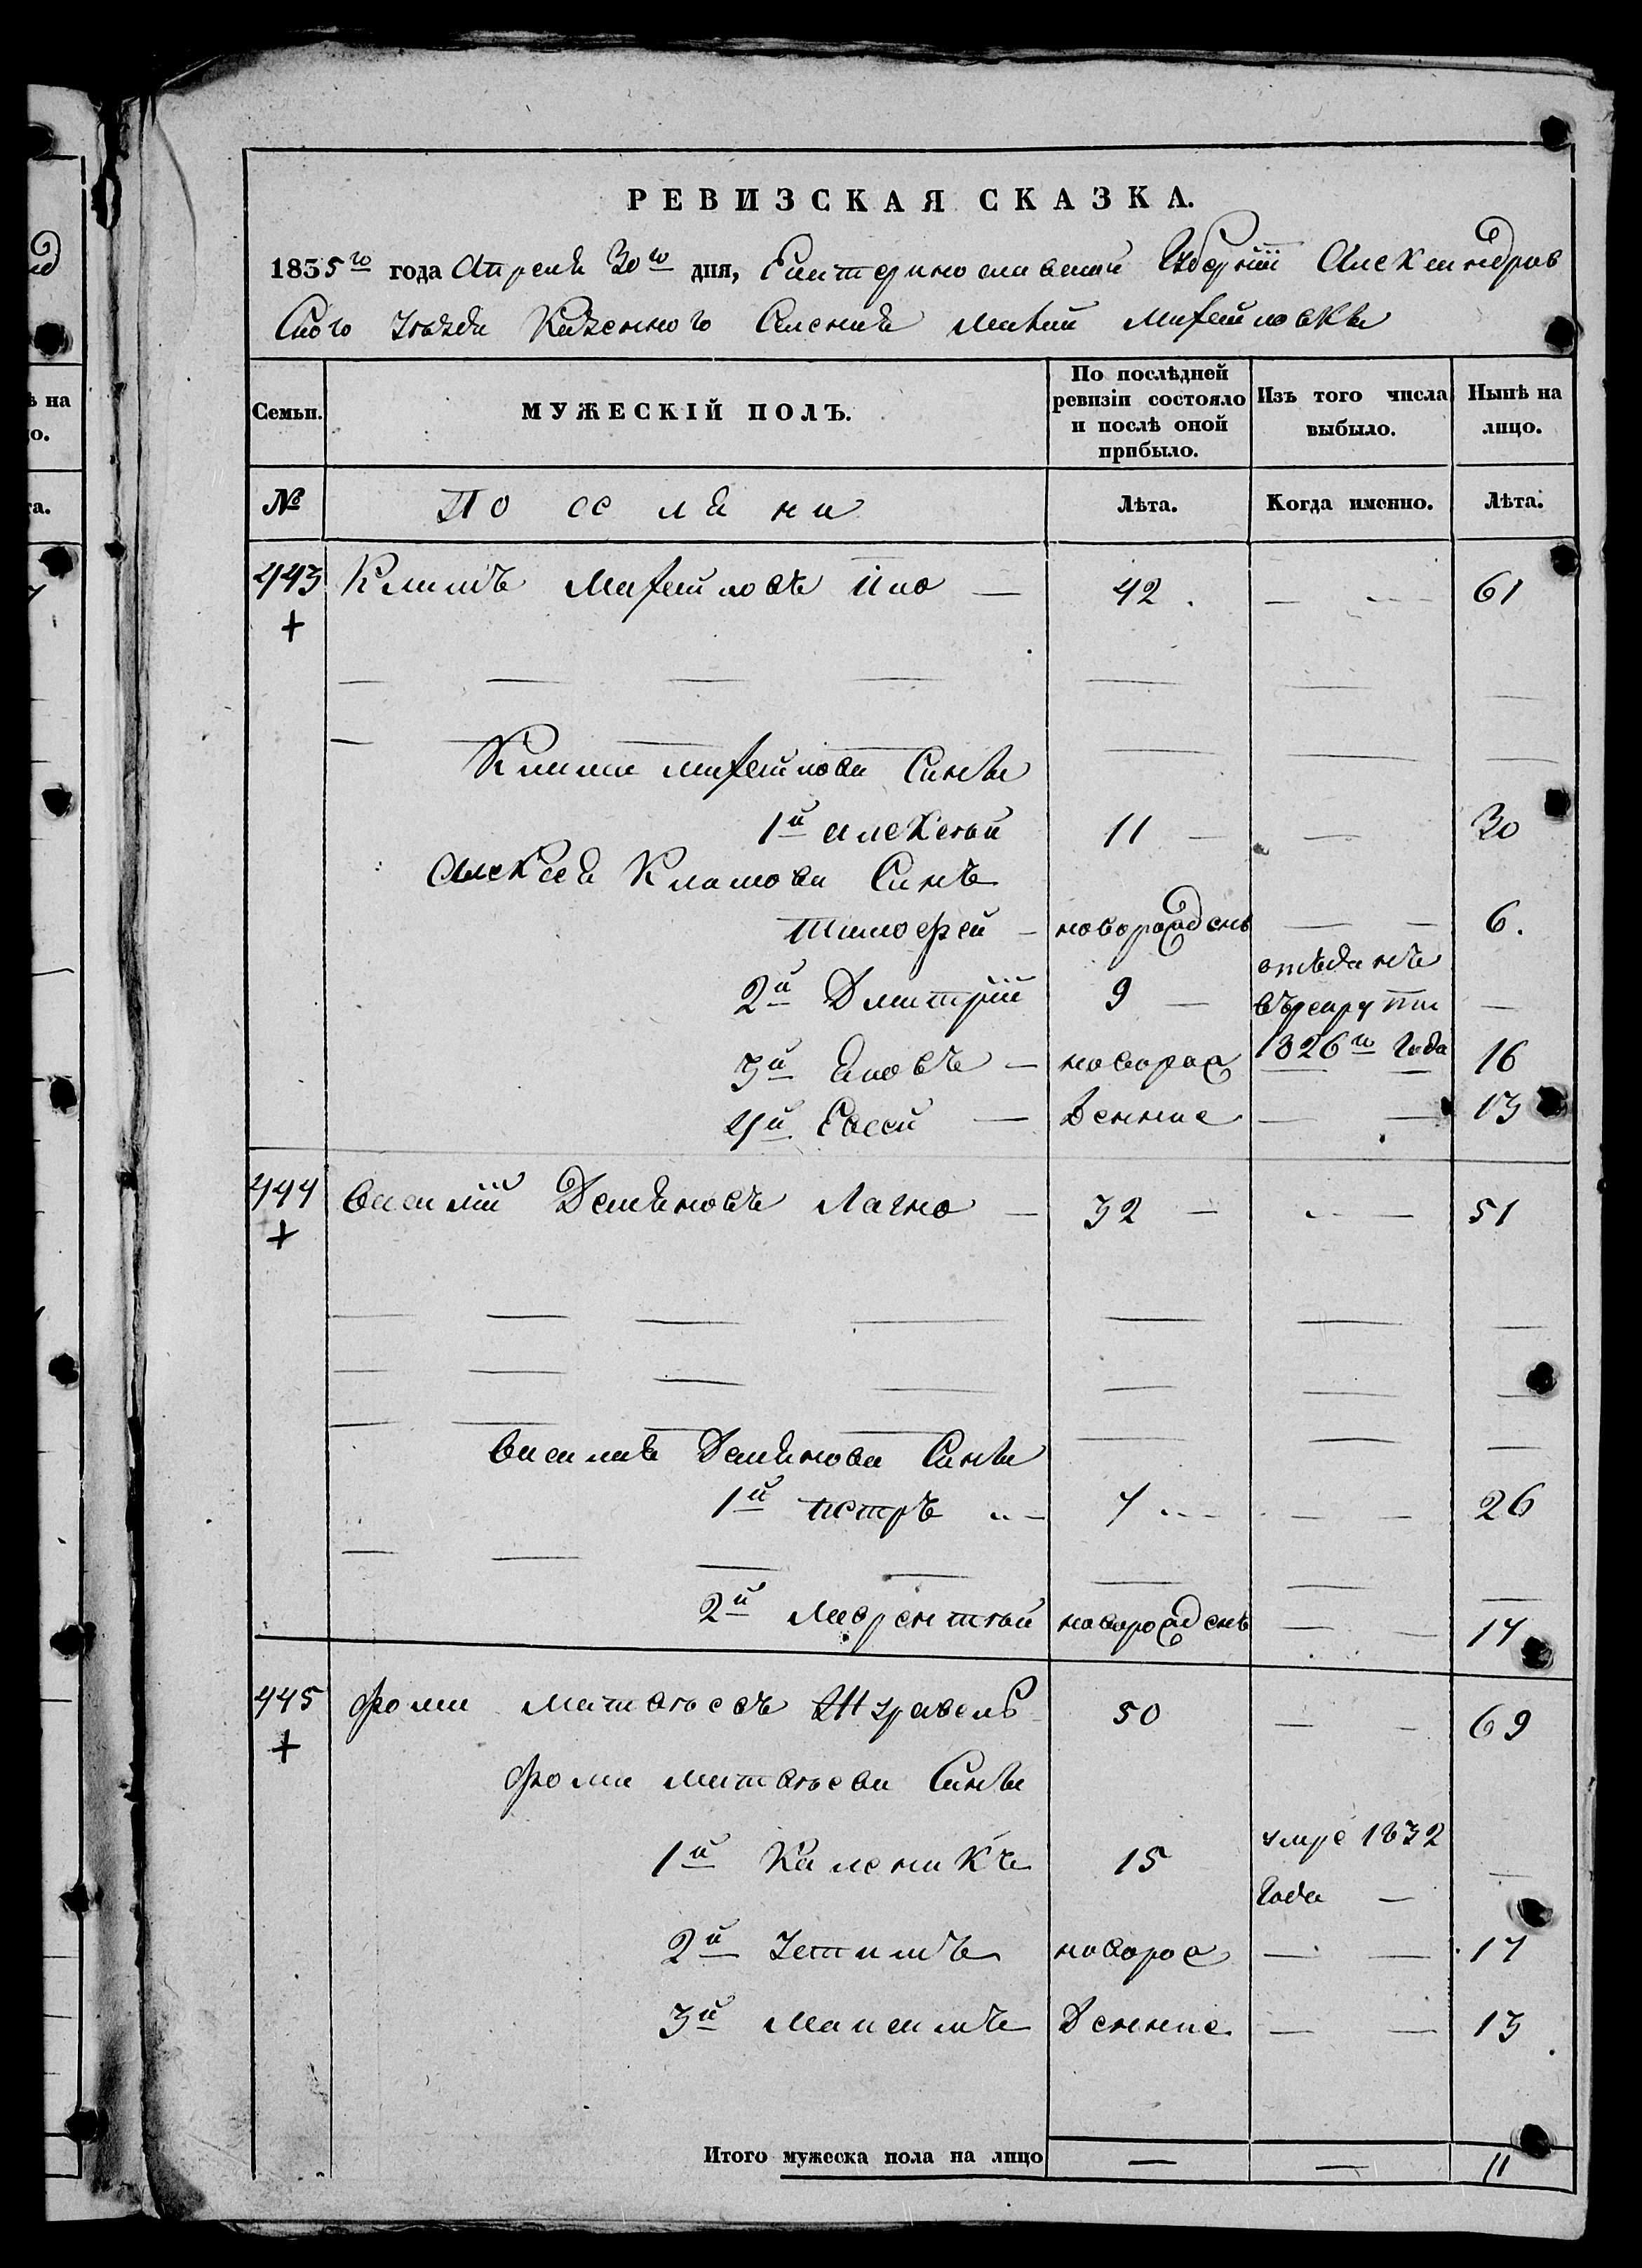 РЕВИЗСКАЯ СКАЗКА.
1835го года Апреля 30го дня, Екатеринославской Губернїи Александров
Ского уезда Казенного Селения малой Михайловки
Семьи. МУЖЕСКІЙ ПОЛЪ. По послѣдней ревизіи состояло и послѣ оной прибыло. Изъ того числа выбыло. Нынѣ на лицо.
№ По се ля не Лѣта. Когда именно. Лѣта.
443 Климъ Михайловъ — 42 — — 61
+
Клима михайлова Сины
1й алексѣй 11 — — 30
Алексея Климова Синъ
тимофей — новорожденъ — — 6.
2й Дмитрїй 9 — отъданъ въ рекруты 1826го Года —
3й яковъ — новорож — — 16
4й Евсей — денние — — 13
444 василїй Демяновъ Лагно — 32 — — 51
+
василия Демянова Сины
1й петръ — 7 — — 26
2й Лаврентѣй новорожденъ — — 17
445 фома матвѣевъ Журавель 50 — — 69
+
фоми матвѣева Сины
1й Каленикъ 15 умре 1832 Года — —
2й устимъ новорож — — 17
3й максимъ Денние — — 13
Итого мужеска пола на лицо — — 11